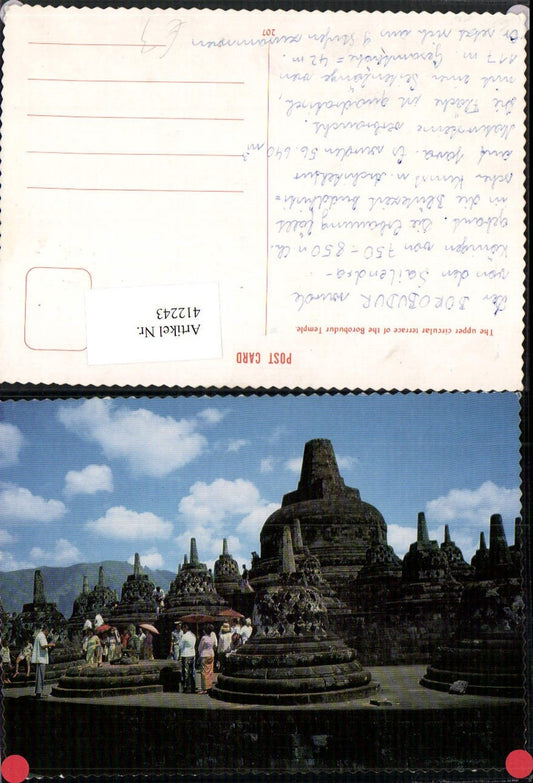 The upper circular terrace of the Borobudur Temple.
POST CARD
Artikel Nr.
412243
Der BOROBUDUR wurde
von den Sailendra-
Königen von 750-850 n Ch.
gebaut. Die Erbauung fällt
in die Blütezeit buddhisti=
scher Kunst u. Architektur
auf Java. Es wurden 56.640 m³
Natursteine verbraucht.
Die Fläche ist quadratisch,
mit einer Seitenlänge von
117 m Gesamthöhe = 42 m.
Er setzt sich aus 9 Stufen zusammen
207